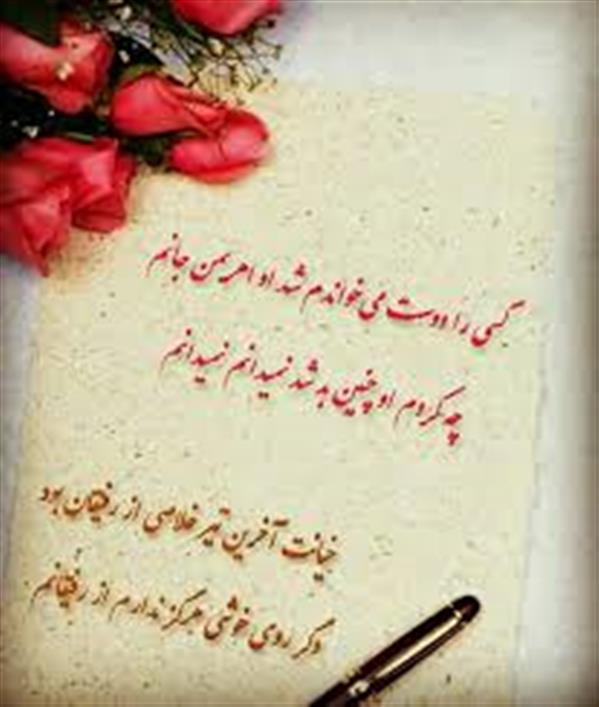 کسی را دوست می خواندم شد او اهریمن جانم
چه کردم او چنین بد شد نمیدانم نمیدانم
خیانت آخرین تیر خلاصی از رفیقان بود
دگر روی خوشی هرگز ندارم از رفیقانم